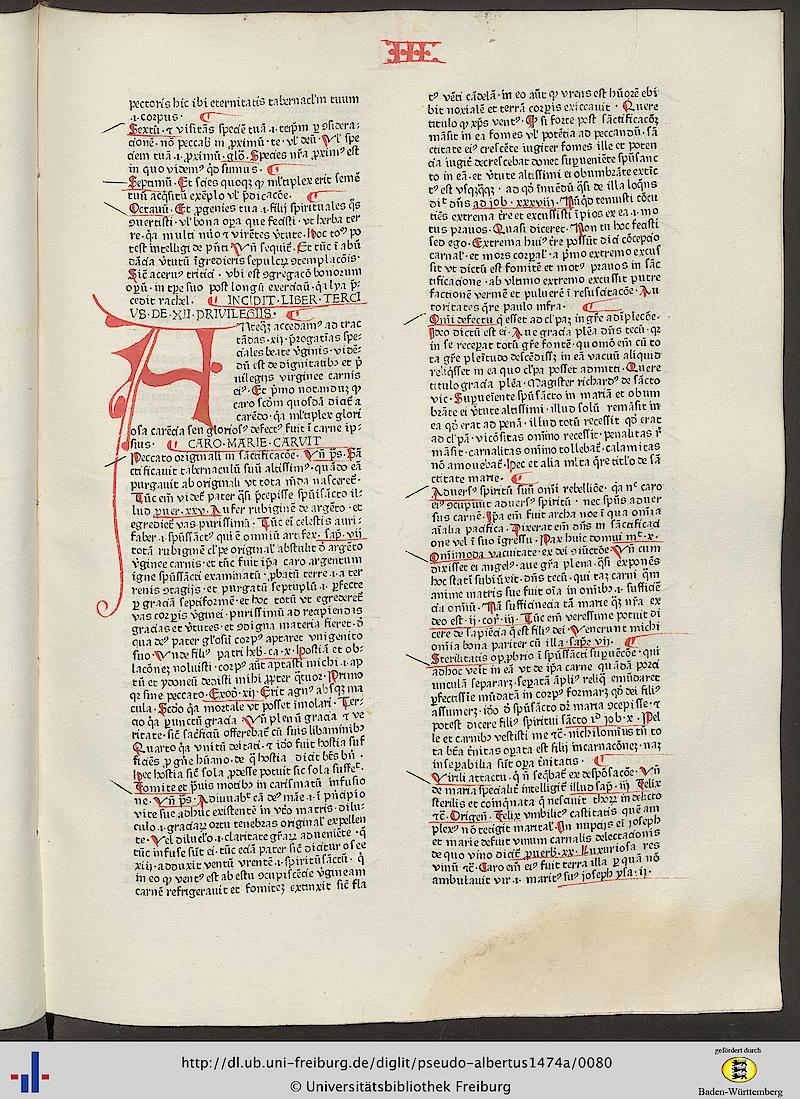 III
pectoris hic ibi eternitatis tabernacl'm tuum
.i. corpus.
Sextũ. ⁊ visitãs speciẽ tuã .i.
cionẽ. nõ peccab in ꝓximũ. te. vl' deũ. Vl' spe
ciem tuã .i. ꝓximũ. glo. Species nr̃a ꝓxim⁹ est
in quo videm⁹ qđ sumus.
Septimũ. Et scies quoqꝫ ꝙ mĩtiplex erit semẽ
tuũ acq̃sitũ exẽplo vl' p̃dicacõe.
Octauũ. Et ꝓgenies tua .i. filij spirituales q̃s
ꝯuertisti. vl' bona oꝑa que fecisti. vt herba ter
re. q̃a multi nũo ⁊ virẽtes v̓tute. Hoc tot⁹ po
test intelligi de p̃nti
dãcia v̓tutũ ĩgredieris sepulcꝝ ꝯtemplacõis.
Sic aceru⁹ tritici. vbi est ꝯgregacõ bonorum
oꝑũ. in tꝑe suo post longũ exerciciũ. q̃a lya p̃
cedit rachel. INCIDIT LIBER TERCI
VS DE XII PRIVILEGIIS.
Anteqꝫ accedam⁹ ad trac
tãdas .xij. p̃rogatĩas spe
ciales beate v̓ginis. vidẽ
dũ est de dignitatib⁹ et p̃
uilegijs virginee carnis
ei⁹. Et p̃mo notandũ ꝙ
caro scđm quosdã dicit̃ a
carẽdo. q̃a mĩtiplex glori
osa carẽcia seu glorios⁹ defect⁹ fuit ĩ carne ip̃
sius. CARO MARIE CARVIT
Peccato originali in sãctificacõe. Vñ p̃s. Sã
ctificauit tabernaculũ suũ altissim⁹. quãdo eã
purgauit ab originali vt tota mũda nasceret̃.
Tũc em̃ videt̃ pater q̃si p̃cepisse spũisãcto il
lud puer. xxv. Aufer rubiginẽ de argẽto. et
egrediet̃ vas purissimũ. Tũc em̃ celestis auri
faber .i. spũssãct⁹ qui ẽ omniũ artifex. sap̃. vij
totã rubiginẽ cl'pe original' abstulit đ argẽto
v̓ginee carnis. et tũc fuit ip̃a caro argentum
igne spũssãcti examinatũ. ꝓbatũ terre .i. a ter
renis ꝯtagijs. et purgatũ septuplũ .i. ꝑfecte
ꝑ graciã septiformẽ. et hoc totũ vt egrederet̃
vas corꝑis v̓ginei. purissimũ ad recipiendũ
gracias et v̓tutes. et ꝯdigna materia fieret. đ
qua de⁹ pater gl'osũ corp⁹ aptaret vnigenito
suo. Vnde fili⁹ patri heb. ca. x. Hostiã et ob
lacõnez noluisti. corp⁹ aũt aptasti michi .i. ap
tũ et ydoneũ dedisti mihi ꝓpter q̃tuor. Primo
qꝛ sine peccato. Exod. xij. Erit agn⁹ absqꝫ ma
cula. Scđo q̃a mortale vt posset imolari. Ter
cio q̃a punctũ gracia. Vñ plenũ gracia ⁊ ve
ritate. sic sacrificiũ offerebat̃ cũ suis libaminib⁹
Quarto q̃a vnitũ deitati. ⁊ ido fuit hostia suf
ficiẽs ꝓ gñe hũano. de q̃ hostia dicit
Hec hostia sic sola ꝓdesse potuit sic sola suffec̃.
Fomite et p̃uis motib⁹ in carismatũ infusio
ne. Vñ p̃s. Adiuuabit eã de⁹ mãe .i. ĩ p̃ncipio
vite sue adhuc existentẽ in vt̃o matris. dilu
culo .i. graciaꝝ ortu tenebras original' expellen
te. Vel diluc̃lo .i. claritate gr̃aꝝ adueniẽte. q̃
tũc infuse sũt ei. tũc ecia pater sic dicitur osee
xiij. adduxit ventũ vrentẽ .i. spiritũsãctũ. q̃
in eo ꝙ vent⁹ est ab estu ꝯcupiscẽcie v̓gineam
carnẽ refrigerauit et fomitẽ extinxit sic fla
t⁹ vẽti cãdelã. in eo aũt ꝙ vrens est hũorẽ ebi
bit noxialẽ et terrã corꝑis exiccauit. Quere
titulo ꝙ xp̃s vent⁹. Q' si forte post sãctificacõz
mãsit in ea fomes vl' potẽtia ad peccandũ. sã
ctitate ei⁹ crescẽte iugiter fomes ille et poten
cia iugit̃ decrescebat donec supueniẽte spũsanc
to in eã. et v̓tute altissimi ei obumbrãte extĩc
t⁹ est vsq̃q̃q̃.
dic̃ dñs ad job. xxxviij. Nũqđ tenuisti cõcu
tiẽs extrema tr̃e et excussisti ĩpios ex ea .i. mo
tus prauos. Quasi diceret. Non tu hoc fecisti
sed ego. Extrema hui⁹ tr̃e possũt dici cõcepcio
carnal'. et mors corꝑal'. a p̃mo extremo excus
sit vt dictũ est fomitẽ et mot⁹ prauos in sãc
tificacione. ab vltimo extremo excussit putre
factionẽ vermẽ et puluerẽ ĩ resuscitacõe. Au
toritates q̃re paulo infra.
Omĩ defectu q̃ esset ad cl'paz in gr̃e adĩplecõe.
Ideo dictũ est ei. Aue gracia plẽa dñs tecũ. qꝛ
in se recepat totũ gr̃e fontẽ. quomõ em̃ cũ to
ta gr̃e plẽitudo descẽdiss̃ in eã vacuũ aliquid
reliq̃sset in ea quo cl'pa posset admitti. Quere
titulo gracia plẽa. Magister richard⁹ de sãcto
vic. Supueniente spũisãcto in mariã et obum
brãte ei v̓tute altissimi. illud solũ remãsit in
ea qđ erat ad penã. illud totũ recessit qđ erat
ad cl'pã. viciositas omĩno recessit. penalitas p̃
mãsit. carnalitas omĩno tollebat̃. calamitas
nõ amouebat̃. Hec et alia ml'ta q̃re titl'o de sã
ctitate marie.
Aduers⁹ spiritũ suũ omĩ rebellioẽ. q̃a nec caro
ei⁹ ꝯcupiuit aduers⁹ spiritũ. nec spũs aduer
sus carnẽ. Ip̃a em̃ fuit archa noe ĩ qua omĩa
aĩalia pacifica. Dixerat em̃ dñs in sãctificacĩ
one vel ĩ suo ĩgressu. Pax huic domui mt̃. x.
Omnimoda vacuitate ex dei ꝯiũctõe. Vñ cum
dixisset ei angel⁹. aue gr̃a plena. q̃si exponẽs
hoc stati subiũxit. dñs tecũ. qui taz carni q̃m
anime matris sue fuit oĩa in omĩb⁹ .i. sufficiẽ
cia omĩũ. Nã sufficiẽcia tã marie q̃ꝫ nr̃a ex
deo est. ij. cor̃. iij. Tũc em̃ verissime potuit di
cere de sapiẽcia q̃ est fili⁹ dei. Venerunt michi
omĩa bona pariter cũ illa. sap̃e vij.
Sterilitatis opꝓbrio ĩ spũssãcti supuẽcõe. qui
adhoc veit in eã vt de ip̃a carne quãdã porci
unculã separaꝝ. sepatã
assumerz. ido đ spũsãcto dr̃ maria ꝯcepisse. ⁊
potest dicere fili⁹ spiritui sãcto iđ job. x. Pel
le et carnib⁹ vestisti me ⁊c̃. nichilomin⁹ tñ to
ta bt̃a t̃nitas oꝑata est filij incarnacõnez. naz
inseꝑabilia sũt oꝑa t̃nitatis.
Virili attactu. q̃ ñ seq̃bat̃ ex despõsacõe. Vñ
de maria specialit̃ intelligit̃ illud sap̃. iij. Felix
sterilis et coinq̃nata q̃ nesciuit thoꝝ in delicto
⁊c̃. Origeñ. Felix vmbilic⁹ castitatis quẽ am
plex⁹ nõ tetigit marital'. In nupcijs em̃ joseph
et marie defuit vinum carnalis delectacionis
de quo vino dicit̃ ꝓuerb. xx. Luxuriosa res
vinũ ⁊c̃. Caro em̃ ei⁹ fuit terra illa ꝑ quã nõ
ambulauit vir .i. marit⁹ su⁹ joseph ysa. ij.
http://dl.ub.uni-freiburg.de/diglit/pseudo-albertus1474a/0080
© Universitätsbibliothek Freiburg
gefördert durch
Baden-Württemberg